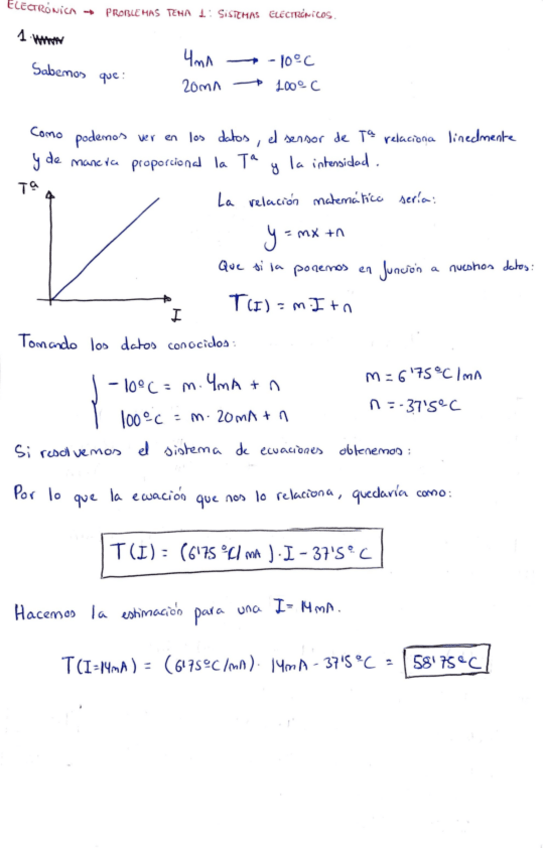 ELECTRÓNICA → PROBLEMAS TEMA 1: SISTEMAS ELECTRÓNICOS.
1.
Sabemos que:
4mA → -10ºC
20mA → 100ºC
Como podemos ver en los datos, el sensor de Tª relaciona linealmente
y de manera proporcional la Tª y la intensidad.
Tª
I
La relación matemático sería:
y = mx + n
Que si la ponemos en función a nuestros datos:
T(I) = m·I + n
Tomando los datos conocidos:
-10ºC = m· 4mA + n
100ºC = m· 20mA + n
m = 6'75ºC/mA
n = -37'5ºC
Si resolvemos el sistema de ecuaciones obtenemos:
Por lo que la ecuación que nos lo relaciona, quedaría como:
T(I) = (6'75 ºC/mA)·I - 37'5º C
Hacemos la estimación para una I= 14mA.
T(I=14mA) = (6'75ºC/mA)· 14mA - 37'5ºC = 58'75ºC